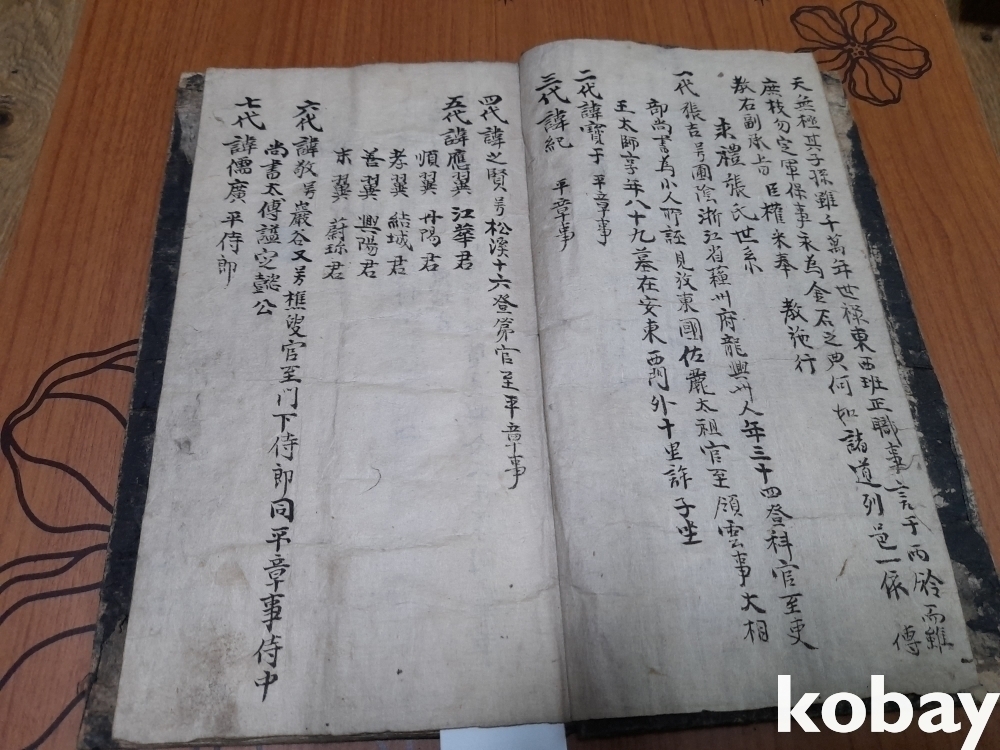 天無極其子孫雖千萬年世祿東西班正職事言于兩
庶枝勿定軍保事永為金石之典何如諸道列邑一依
教右副承旨臣權米奉 教施行
求禮張氏世系
一代 張吉号圃陰浙江省蘓州府龍興卅人年三十四登科官至吏
部尚書為小人所誣見放東國佐麗太祖官至領雲事大相
王太師享年八十九墓在安東西門外十里許子坐
二代諱寶子 平章事
三代諱紀 平章事
四代諱之賢号松溪十六登第官至平章事
五代諱應翼 江華君
順翼 丹陽君
孝翼 結城君
善翼 興陽君
末翼 蔚珎君
六代諱敬号巖谷又号樵叟官至門下侍郎同平章事侍中
尚書太傅謚定懿公
七代諱儒廣 平侍郎
kobay